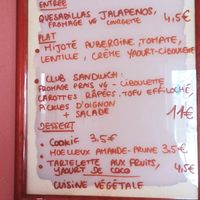 ENTRÉE
QUESADILLAS JALAPENOS,
FROMAGE VG COURGETTE 4,5€
PLAT
• MIJOTÉ AUBERGINE, TOMATE,
LENTILLE, CRÈME YAOURT-CIBOULETTE
• CLUB SANDWICH:
FROMAGE FRAIS VG - CIBOULETTE
CAROTTES RÂPÉES. TOFU EFFILOCHÉ,
PICKLES D'OIGNON
+ SALADE 11€
DESSERT
• COOKIE 3,5€
• MOELLEUX AMANDE-PRUNE 3,5€
• TARTELETTE AUX FRUITS,
YAOURT DE COCO 4,5€
CUISINE VÉGÉTALE